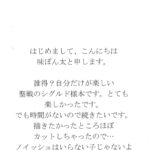 はじめまして、こんにちは
味ぽん太と申します。
誰得？自分だけが楽しい
聖戦のシグルド様本です。とても
楽しかったです。
でも時間がないので続きたいです。
描きたかったところほぼ
カットしちゃったので…
ノイッシュはいらない子じゃないよ